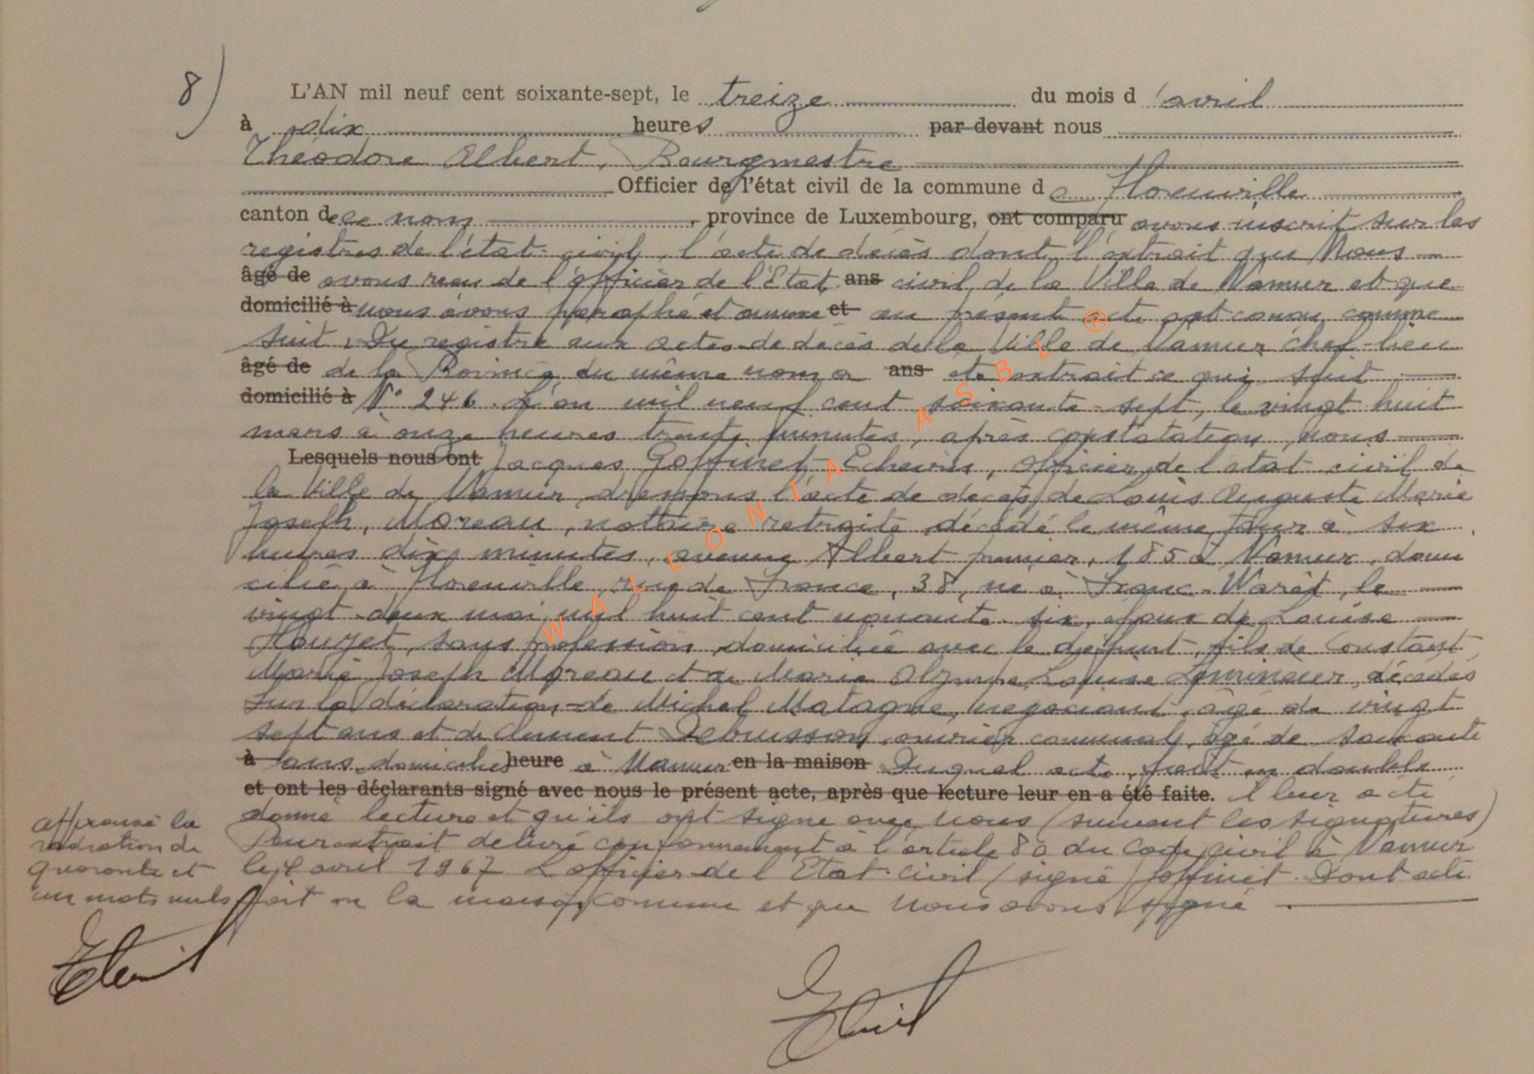 8)
L'AN mil neuf cent soixante-sept, le treize du mois d'avril
à dix heures par-devant nous
Théodore Albert, Bourgmestre
Officier de l'état civil de la commune de Florenville
canton de ce nom, province de Luxembourg, ont comparu avons inscrit sur les
registres de l'état-civil, l'acte de décès dont l'extrait que Nous
âgé de avons reçu de l'officier de l'Etat ans civil de la Ville de Namur et que
domicilié à nous avons paraphé et annexé et au présent acte est conçu comme
suit. Du registre aux actes de décès de la Ville de Namur chef-lieu
âgé de de la Province du même nom a ans été extrait ce qui suit
domicilié à N° 246. L'an mil neuf cent soixante-sept, le vingt huit
mars à onze heures trente minutes, après constatation, nous
Lesquels nous ont Jacques Goffinet, Echevin, officier de l'état civil de
la Ville de Namur, dressons l'acte de décès de Louis Auguste Marie
Joseph, Moreau, notaire retraité, décédé le même jour à six
heures dix minutes, avenue Albert premier, 185 à Namur, domi
cilié à Florenville, rue de France, 38, né à Franc-Warêt, le
vingt-deux mai mil huit cent nonante-six, époux de Louise
Houzet, sans profession, domiciliée avec le défunt, fils de Constant
Marie Joseph Moreau et de Marie Olympe Louise Lemineur, décédés
Sur la déclaration de Michel Matagne, négociant, âgé de vingt
sept ans et de Clément Debuisson, ouvrier communal, âgé de soixante
à ans, domiciliés heure à Namur en la maison Duquel acte, fait en double
et ont les déclarants signé avec nous le présent acte, après que lecture leur en a été faite. il leur a été
donné lecture et qu'ils ont signé avec nous (suivent les signatures)
Pour extrait délivré conformément à l'article 80 du code civil à Namur
le 4 avril 1967 L'officier de l'Etat-civil (signé) Goffinet. Dont acte
fait en la maison commune et que nous avons signé
approuvé la
radiation de
quarante et
un mots nuls
WALLONIA ASBL ®